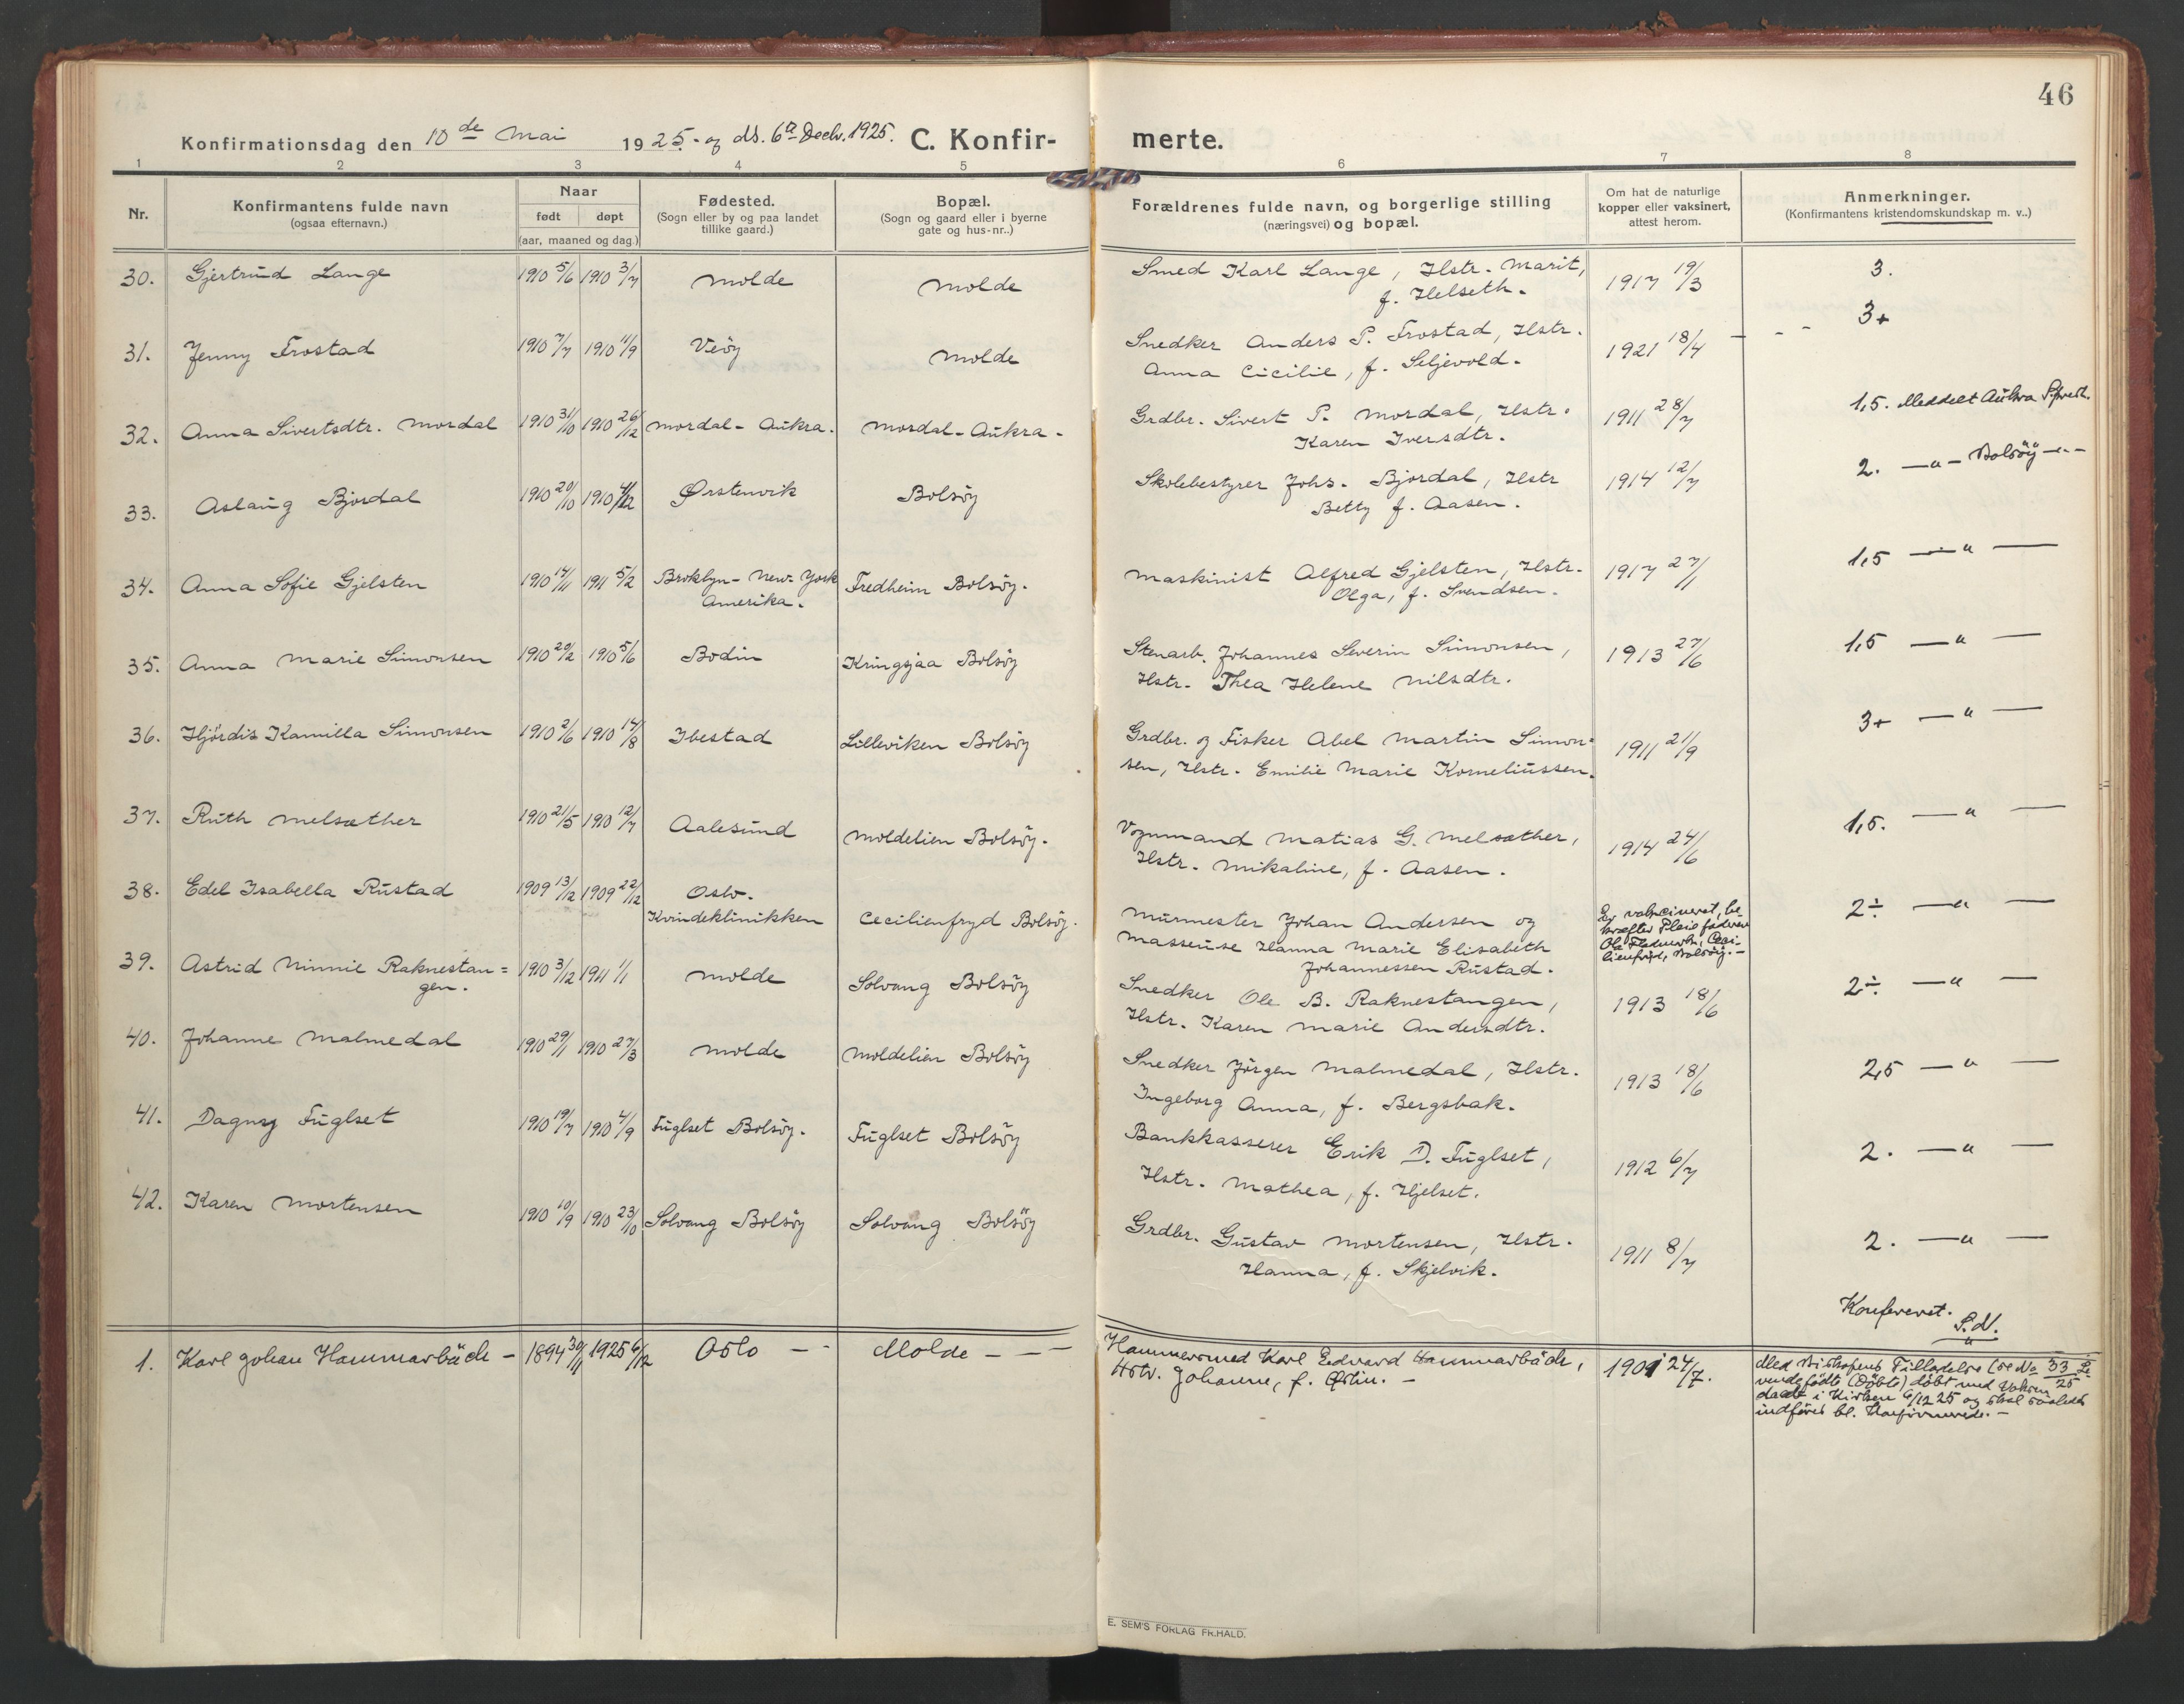 46
Konfirmationsdag den 10de Mai 1925.- og ds. 6te Decbr. 1925. C. Konfirmerte.
1 2 3 4 5 6 7 8
Nr.
Konfirmantens fulde navn
(ogsaa efternavn.)
Naar
født døpt
(aar, maaned og dag.)
Fødested.
(Sogn eller by og paa landet
tillike gaard.)
Bopæl.
(Sogn og gaard eller i byerne
gate og hus-nr..)
Forældrenes fulde navn, og borgerlige stilling
(næringsvei) og bopæl.
Om hat de naturlige
kopper eller vaksinert,
attest herom.
Anmerkninger.
(Konfirmantens kristendomskundskap m. v..)
30. Gjertrud Lange 1910 5/6 1910 3/7 Molde Molde Smed Karl Lange, Hstr. Marit, 1917 19/3 3.
f. Helseth.
31. Jenny Frostad 1910 7/7 1910 11/9 Veöy Molde Snedker Anders P. Frostad, Hstr. 1921 18/4 - - 3+
Anna Cicilie, f. Seljevold.
32. Anna Sivertsdtr. Mordal 1910 31/10 1910 26/12 Mordal-Aukra. Mordal-Aukra. Grdbr. Sivert P. Mordal, Hstr. 1911 28/7 1,5. Meddelt Aukra
Karen Iversdtr.
33. Aslaug Bjordal 1910 20/10 1910 4/12 Ørstenvik Bolsöy Skolebestyrer Johs. Bjordal, Hstr 1914 12/7 2. —"— Bolsöy —"—
Betty f. Aasen.
34. Anna Sofie Gjelsten 1910 14/11 1911 5/2 Broklyn-New-York Fredheim Bolsöy. Maskinist Alfred Gjelsten, Hstr. 1917 27/1 1,5 —"—
Amerika. Olga, f. Svendsen.
35. Anna Marie Simonsen 1910 20/2 1910 5/6 Bodin Kringsjaa Bolsöy Stenarb. Johannes Severin Simonsen, 1913 27/6 1,5 —"—
Hstr. Thea Helene Nilsdtr.
36. Hjördis Kamilla Simonsen 1910 2/6 1910 14/8 Ibestad Lilleviken Bolsöy Grdbr. og Fisker Abel Martin Simon= 1911 21/9 3+ —"—
sen, Hstr. Emilie Marie Korneliussen.
37. Ruth Melsæther 1910 21/5 1910 12/7 Aalesund Moldelien Bolsöy. Vognmand Matias G. Melsæther, 1914 24/6 1,5. —"—
Hstr. Mikaline, f. Aasen.
38. Edel Isabella Rustad 1909 13/12 1909 22/12 Oslo. Cecilienfryd Bolsöy. Murmester Johan Andersen og Er vakcineret, be- 2÷ —"—
Kvindeklinikken Masseuse Hanna Marie Elisabeth kræfter Pleiefaderen
Johannessen Rustad. Ole Cecilienfryd, Bolsöy.-
39. Astrid Ninnie Raknestan= 1910 3/12 1911 1/1 Molde Solvang Bolsöy Snedker Ole B. Raknestangen, 1913 18/6 2÷ —"—
gen. Hstr. Karen Marie Andersdtr.
40. Johanne Malmedal 1910 29/1 1910 27/3 Molde Moldelien Bolsöy Snedker Jörgen Malmedal, Hstr. 1913 18/6 2,5 —"—
Ingeborg Anna, f. Bergsbak.
41. Dagny Fuglset 1910 19/7 1910 4/9 Fuglset Bolsöy. Fuglset Bolsöy Bankkasserer Erik D. Fuglset, 1912 6/7 2. —"—
Hstr. Mathea, f. Hjelset.
42. Karen Mortensen 1910 10/9 1910 23/10 Solvang Bolsöy Solvang Bolsöy Grdbr. Gustav Mortensen, Hstr. 1911 8/7 2. —"—
Hanna, f. Skjelvik.
Konfereret.
S.N.
1. Karl Johan Hammarbäck - 1894 30/11 1925 6/12 Oslo - - Molde - - - Hammersmed Karl Edvard Hammarbäck, 1901 24/7. Med Biskopens Tilladelse (se No 33 Le-
Hstr. Johanne, f. Østlin. - vendefödte (Döbte) döbt med Voksen 25
daab i Kirken 6/12 25 og skal saaledes
indföres bl. Konfirmerede.-
E. SEM'S FORLAG FR.HALD.